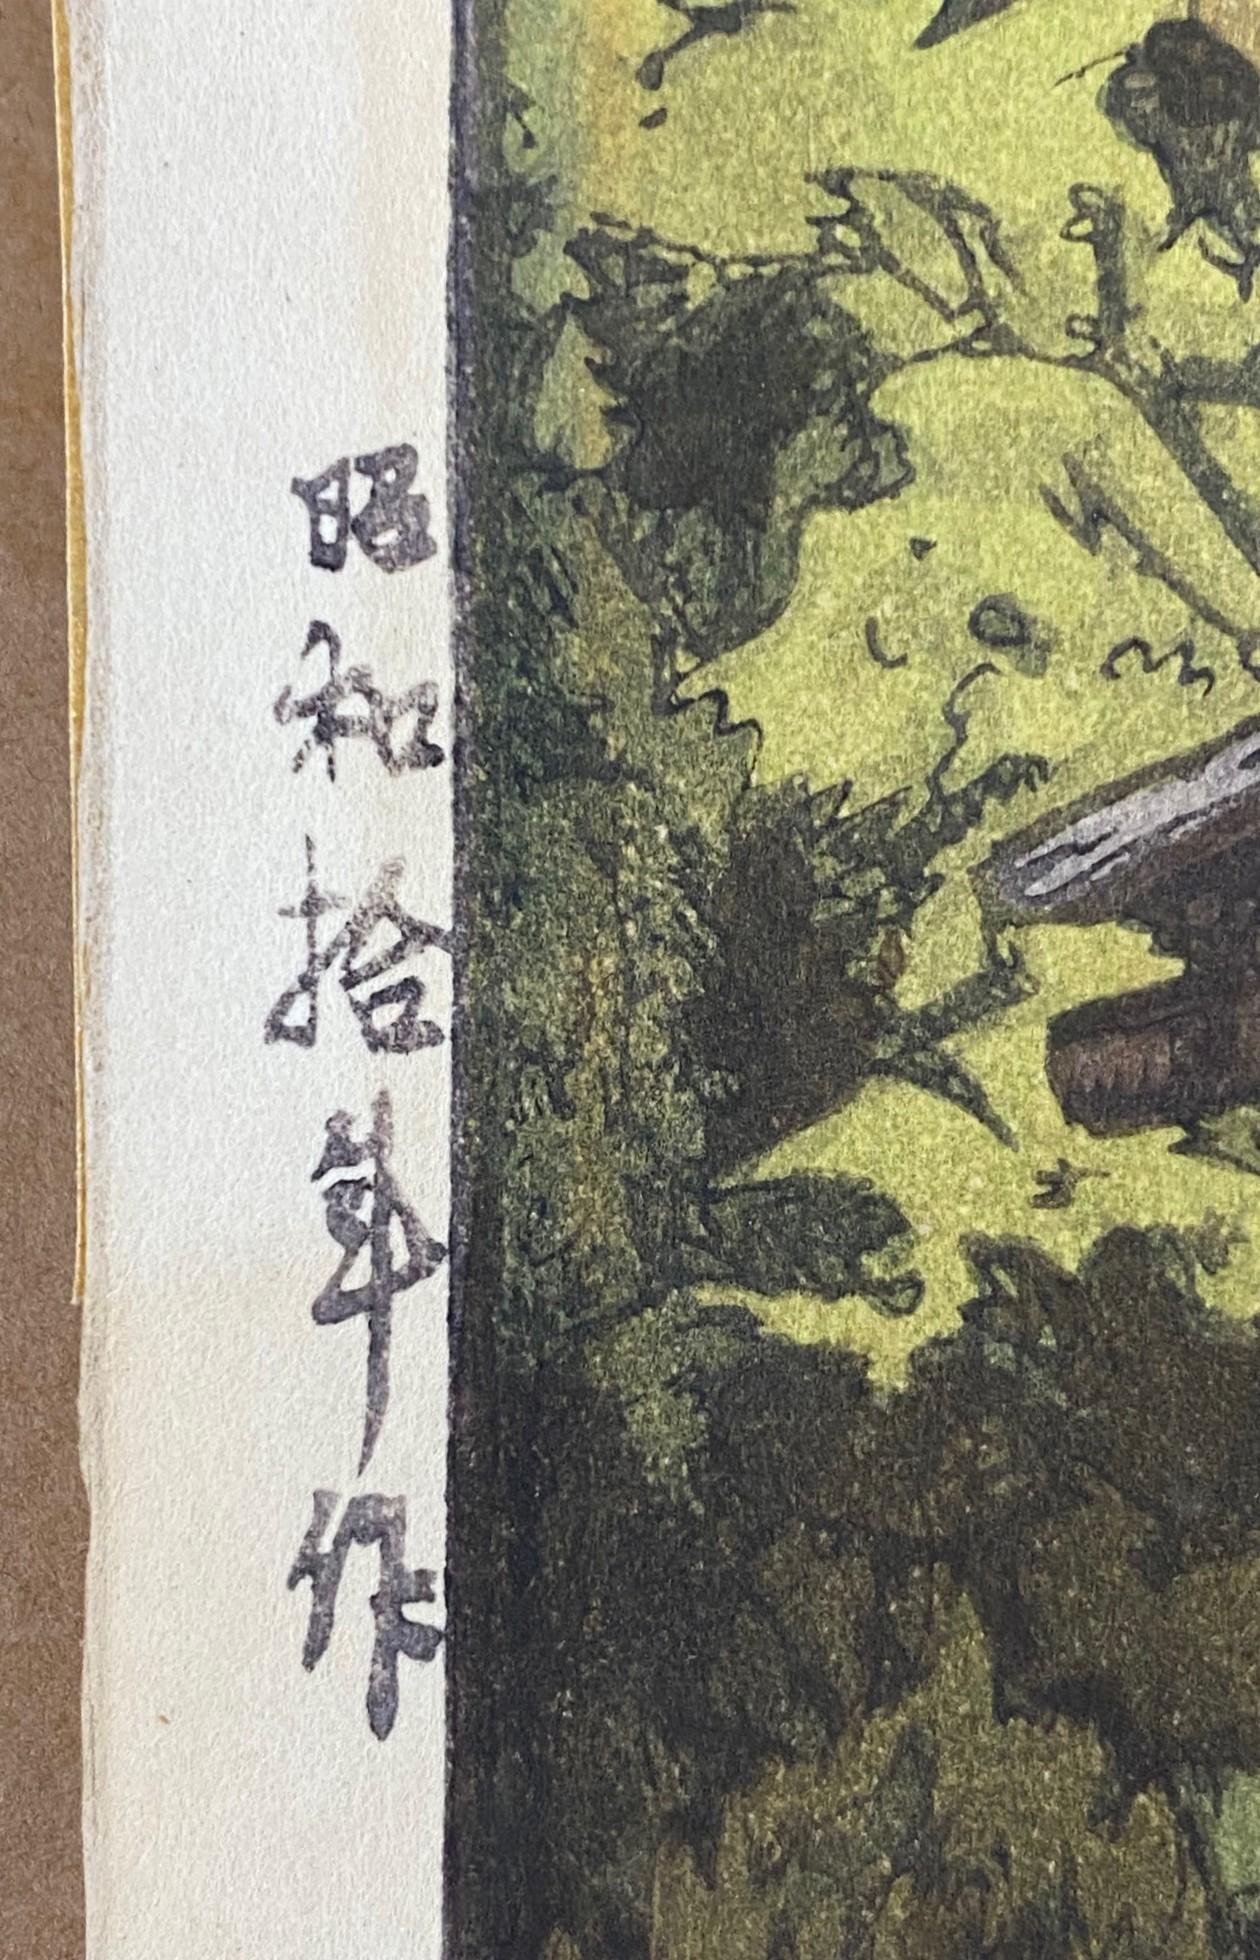 昭和拾年作